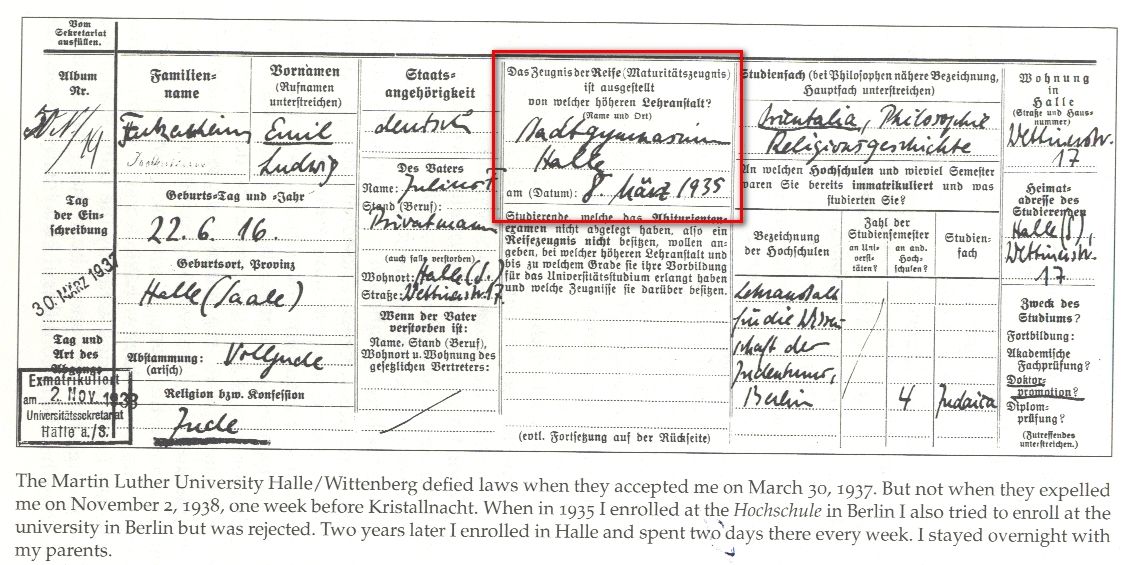 Vom
Sekretariat
ausfüllen.
Album
Nr.
Tag
der Ein-
schreibung
30. MÄRZ 1937
Tag und
Art des
Abgangs
Exmatrikuliert
am 2. Nov. 1938
Universitätssekretariat
Halle a./S.
Familien-
name
Fackenheim
Vornamen
(Rufnamen
unterstreichen)
Emil
Ludwig
Geburts-Tag und -Jahr
22. 6. 16.
Geburtsort, Provinz
Halle (Saale)
Abstammung: Volljude
(arisch)
Religion bzw. Konfession
Jude
Staats-
angehörigkeit
deutsch
Des Vaters
Name: Julius F.
Stand (Beruf):
Privatmann
(auch falls verstorben)
Wohnort: Halle (S.)
Straße: Wettinerstr. 17.
Wenn der Vater
verstorben ist:
Name, Stand (Beruf),
Wohnort u. Wohnung des
gesetzlichen Vertreters:
Das Zeugnis der Reife (Maturitätszeugnis)
ist ausgestellt
von welcher höheren Lehranstalt?
(Name und Ort)
Stadtgymnasium
Halle
am (Datum): 8. März 1935
Studierende, welche das Abiturienten-
examen nicht abgelegt haben, also ein
Reifezeugnis nicht besitzen, wollen an-
geben, bei welcher höheren Lehranstalt und
bis zu welchem Grade sie ihre Vorbildung
für das Universitätsstudium erlangt haben
und welche Zeugnisse sie darüber besitzen.
(evtl. Fortsetzung auf der Rückseite)
Studienfach (bei Philosophen nähere Bezeichnung,
Hauptfach unterstreichen)
Orientalia, Philosophie
Religionsgeschichte
An welchen Hochschulen und wieviel Semester
waren Sie bereits immatrikuliert und was
studierten Sie?
Bezeichnung
der Hochschulen
Zahl der
Studiensemester
an Uni-
versi-
täten?
an and.
Hoch-
schulen?
Studien-
fach
Lehranstalt
für die Wissen-
schaft des
Judentums,
Berlin 4 Judaica
Wohnung
in
Halle
(Straße und Haus-
nummer)
Wettinerstr.
17
Heimat-
adresse des
Studierenden
Halle (S.),
Wettinerstr.
17.
Zweck des
Studiums?
Fortbildung:
Akademische
Fachprüfung?
Doktor-
promotion?
Diplom-
prüfung?
(Zutreffendes
unterstreichen.)
The Martin Luther University Halle/Wittenberg defied laws when they accepted me on March 30, 1937. But not when they expelled
me on November 2, 1938, one week before Kristallnacht. When in 1935 I enrolled at the Hochschule in Berlin I also tried to enroll at the
university in Berlin but was rejected. Two years later I enrolled in Halle and spent two days there every week. I stayed overnight with
my parents.